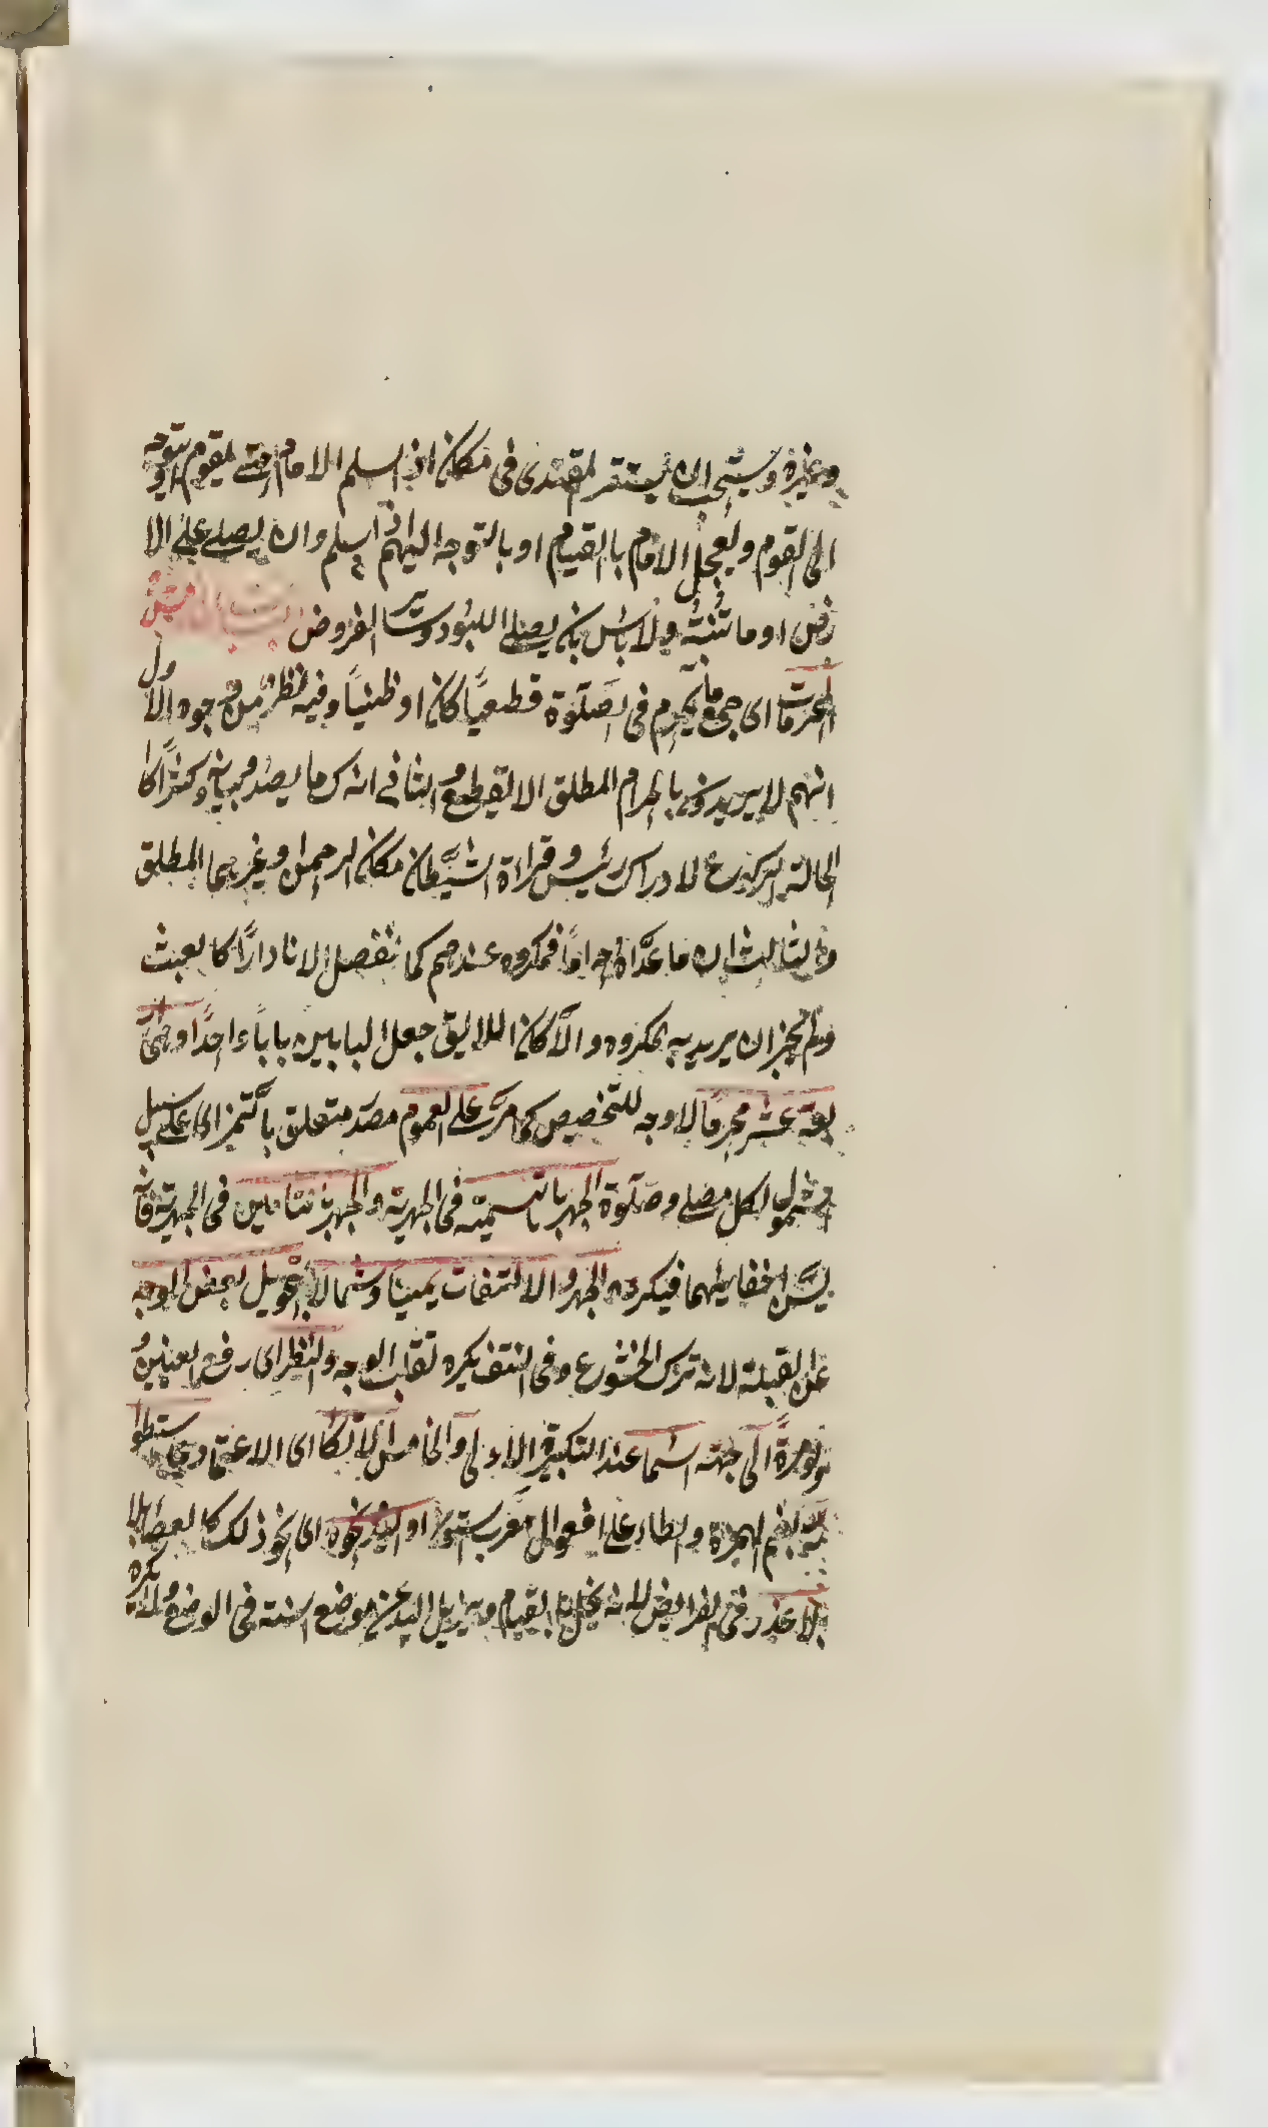 وغيره ويستحب ان يستقر المقتدى فى مكانه اذا سلم الامام حتى يقوم او يتوجه
الى القوم ويعجل الامام بالقيام او بالتوجه اليهم اذا سلم وان يصلى على الا
رض او ما تنبته ولا باس بان يصلى اللبود وسائر الفروض
المحرمات اى جميع ما يحرم فى الصلوة قطعيًا كان او ظنيًا وفيه نظر من وجوه الاول
انهم لا يريدون بالحرام المطلق الا القطعى والثانى انه
الحالة الركوع لادراك وقراءة الشيطان مكان الرحمن وغيرهما المطلق
والثالث ان ما عداه حراما فمكروه عندهم كما نفصل الا نادارًا كالعبث
ولم يجز ان يريد به المكروه والا كان اللايق جعل البابين بابا واحدًا وهى
بعة عشر محرمًا لا وجه للتخصيص كما مر على العموم متعلق بالتميز اى على سبيل
الشمول لكل مصلى وصلوة الجهر بالتسمية فى الجهرية والجهر بالتامين فى الجهرية فانه
يسن اخفائهما فيكره الجهر والالتفات يمينا وشمالا بتحويل بعض الوجه
عن القبلة لانه ترك الخشوع وفى النتف يكره تقلب الوجه والنظر اى رفع العينين
الى جهة السماء عند التكبيرة الاولى والخامس الاتكا اى الاعتماد على اسطوا
نة بضم الهمزة والطاء على افعوال معرب ستون او اليد ونحوه اى نحو ذلك كالعصا
بلا عذر فى الفرايض لانه يخل بالقيام ويزيل اليد عن موضع السنة فى الوضع ولا يكره